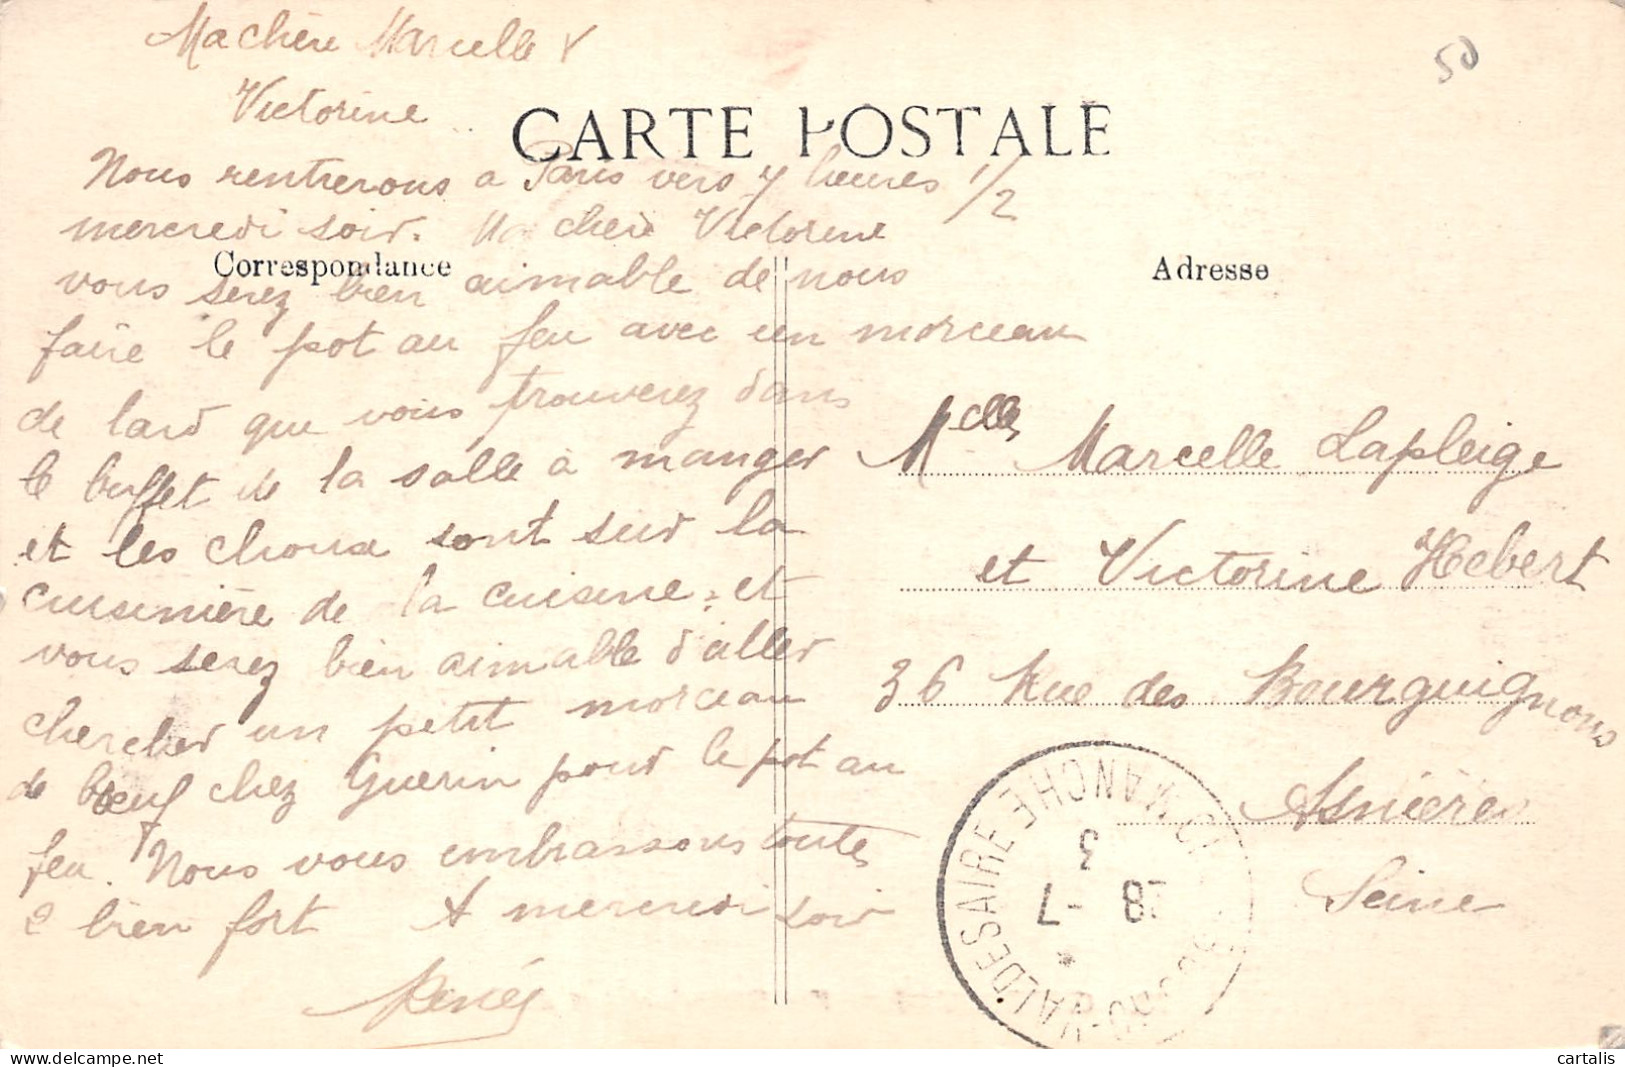 Ma chère Marcelle &
Victorine
50
CARTE POSTALE
Nous rentrerons a Paris vers 7 heures 1/2
mercredi soir. Ma chère Victorine
Correspondance
vous serez bien aimable de nous
faire le pot au feu avec un morceau
de lard que vous trouverez dans
le buffet de la salle à manger
et les choux sont sur la
cuisinière de la cuisine, et
vous serez bien aimable d'aller
chercher un petit morceau
de boeuf chez Guerin pour le pot au
feu. Nous vous embrassons toutes
2 bien fort A mercredi soir
Adresse
Melles Marcelle Lapleige
et Victorine Hebert
36 Rue des Bourguignons
Asnières
Seine
VALDESAIRE MANCHE
3
28 - 7
cartalis